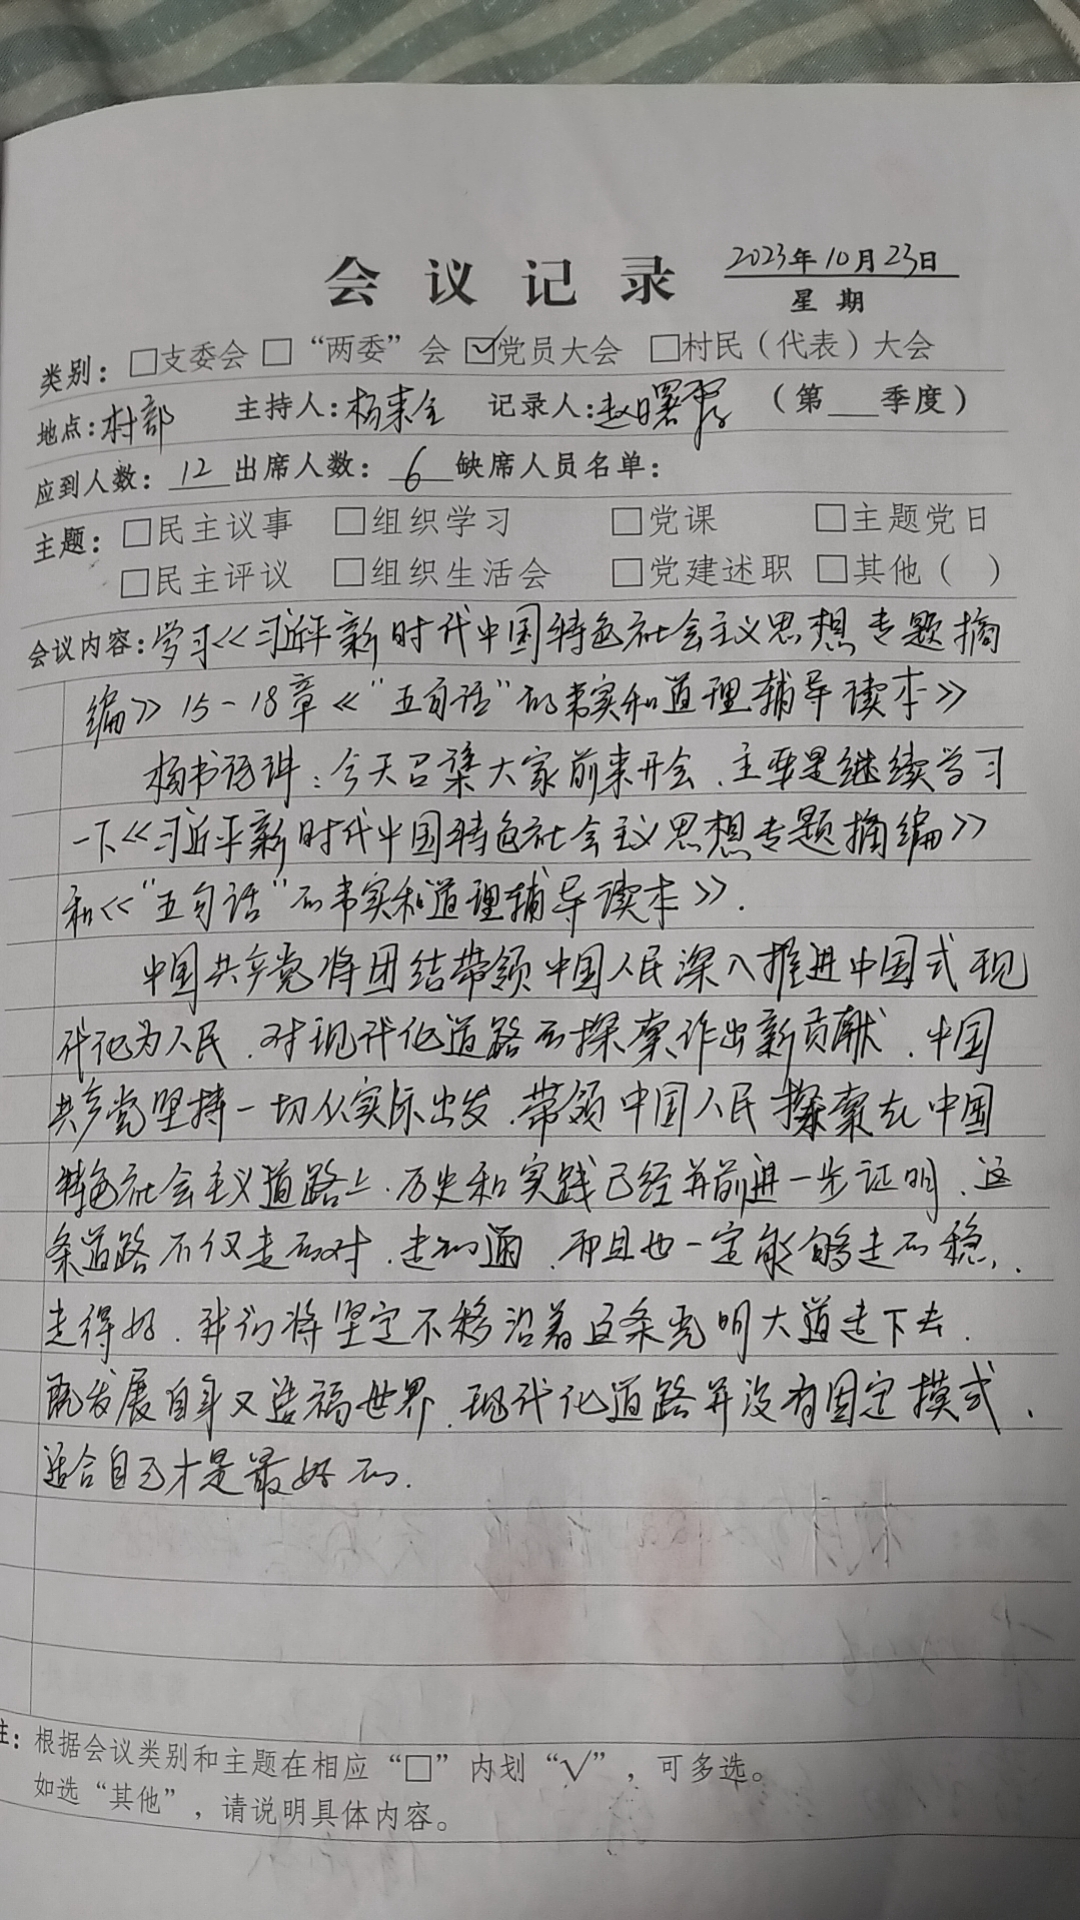 会议记录
2023年10月23日
星期
类别：□支委会 □“两委”会 ☑党员大会 □村民（代表）大会
地点：村部 主持人：杨来全 记录人：赵曙 （第___季度）
应到人数：12 出席人数：6 缺席人员名单：
主题：□民主议事 □组织学习 □党课 □主题党日
□民主评议 □组织生活会 □党建述职 □其他（ ）
会议内容：学习《习近平新时代中国特色社会主义思想专题摘
编》15-18章《“五句话”的事实和道理辅导读本》
杨书记讲：今天召集大家前来开会，主要是继续学习
一下《习近平新时代中国特色社会主义思想专题摘编》
和《“五句话”的事实和道理辅导读本》.
中国共产党将团结带领中国人民深入推进中国式现
代化为人民，对现代化道路的探索作出新贡献，中国
共产党坚持一切从实际出发，带领中国人民探索在中国
特色社会主义道路上，历史和实践已经并前进一步证明，这
条道路不仅走的对，走的通，而且也一定能够走的稳，
走得好，我们将坚定不移沿着这条光明大道走下去，
既发展自身又造福世界，现代化道路并没有固定模式，
适合自己才是最好的.
注：根据会议类别和主题在相应“□”内划“√”，可多选。
如选“其他”，请说明具体内容。